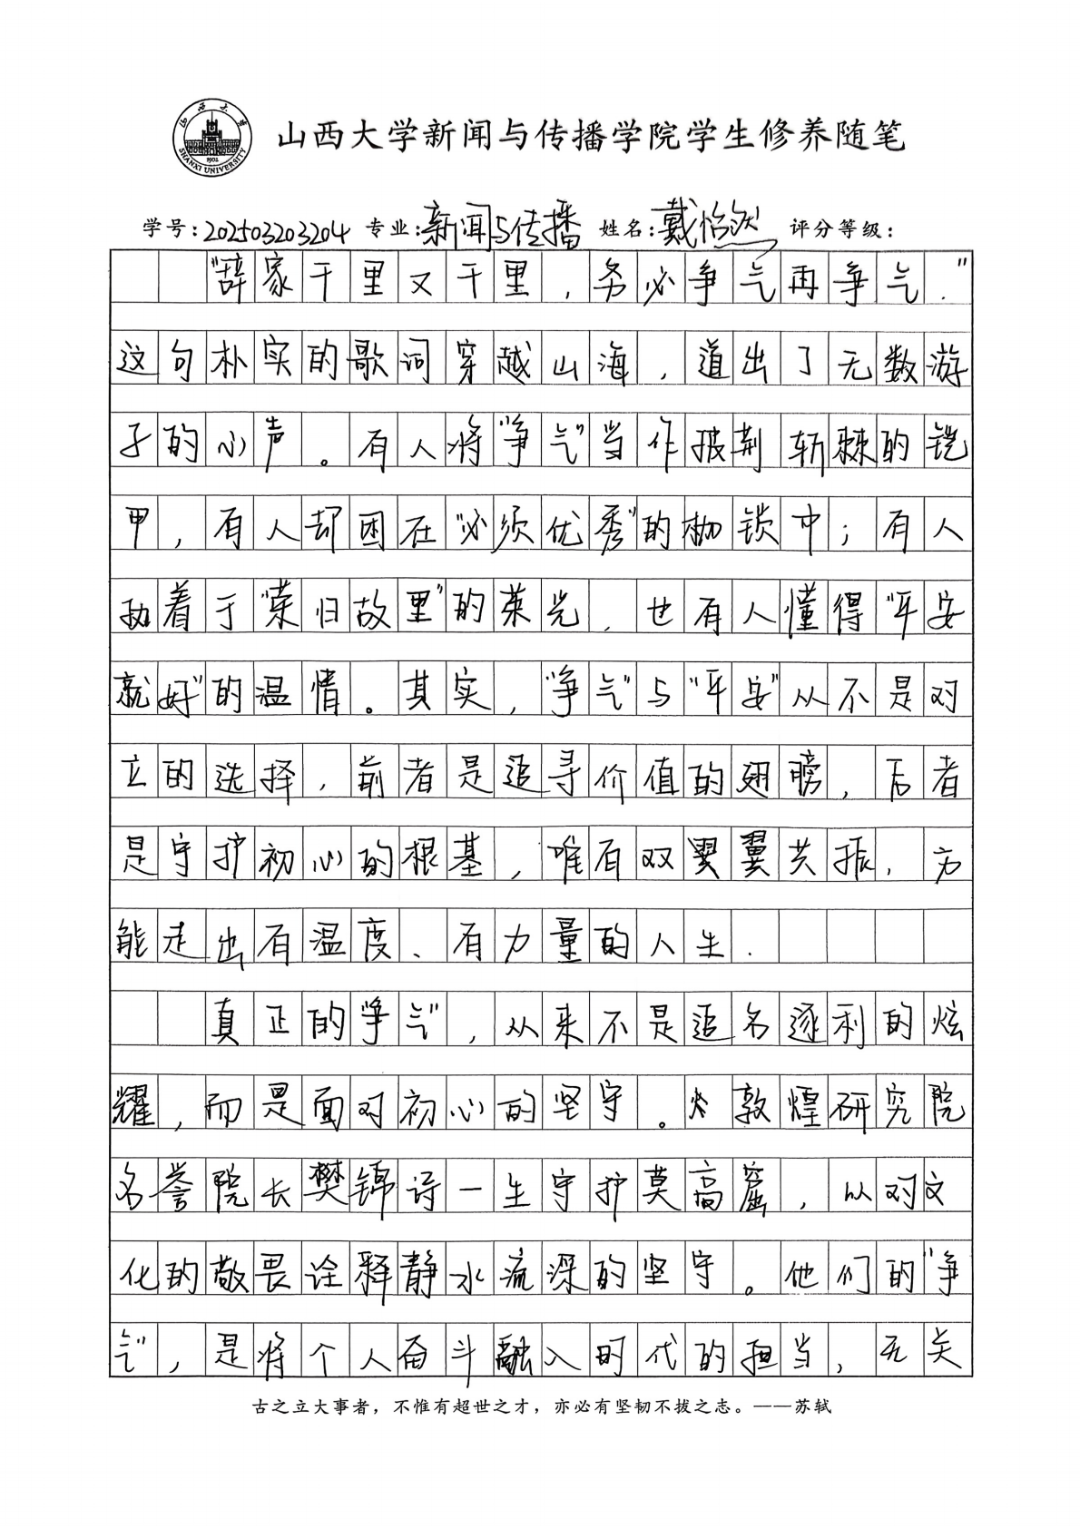 山西大学
SHANXI UNIVERSITY
1902
山西大学新闻与传播学院学生修养随笔
学号:202503203204 专业:新闻与传播 姓名:戴怡然 评分等级:
“辞家千里又千里，务必争气再争气.”
这句朴实的歌词穿越山海，道出了无数游
子的心声。有人将“争气”当作披荆斩棘的铠
甲，有人却困在“必须优秀”的枷锁中；有人
执着于“荣归故里”的荣光，也有人懂得“平安
就好”的温情。其实，“争气”与“平安”从不是对
立的选择，前者是追寻价值的翅膀，后者
是守护初心的根基，唯有双翼翼共振，方
能走出有温度、有力量的人生.
真正的“争气”，从来不是追名逐利的炫
耀，而是面对初心的坚守。敦煌研究院
名誉院长樊锦诗一生守护莫高窟，以对文
化的敬畏诠释静水流深的坚守。他们的“争
气”，是将个人奋斗融入时代的担当，无关
古之立大事者，不惟有超世之才，亦必有坚韧不拔之志。——苏轼